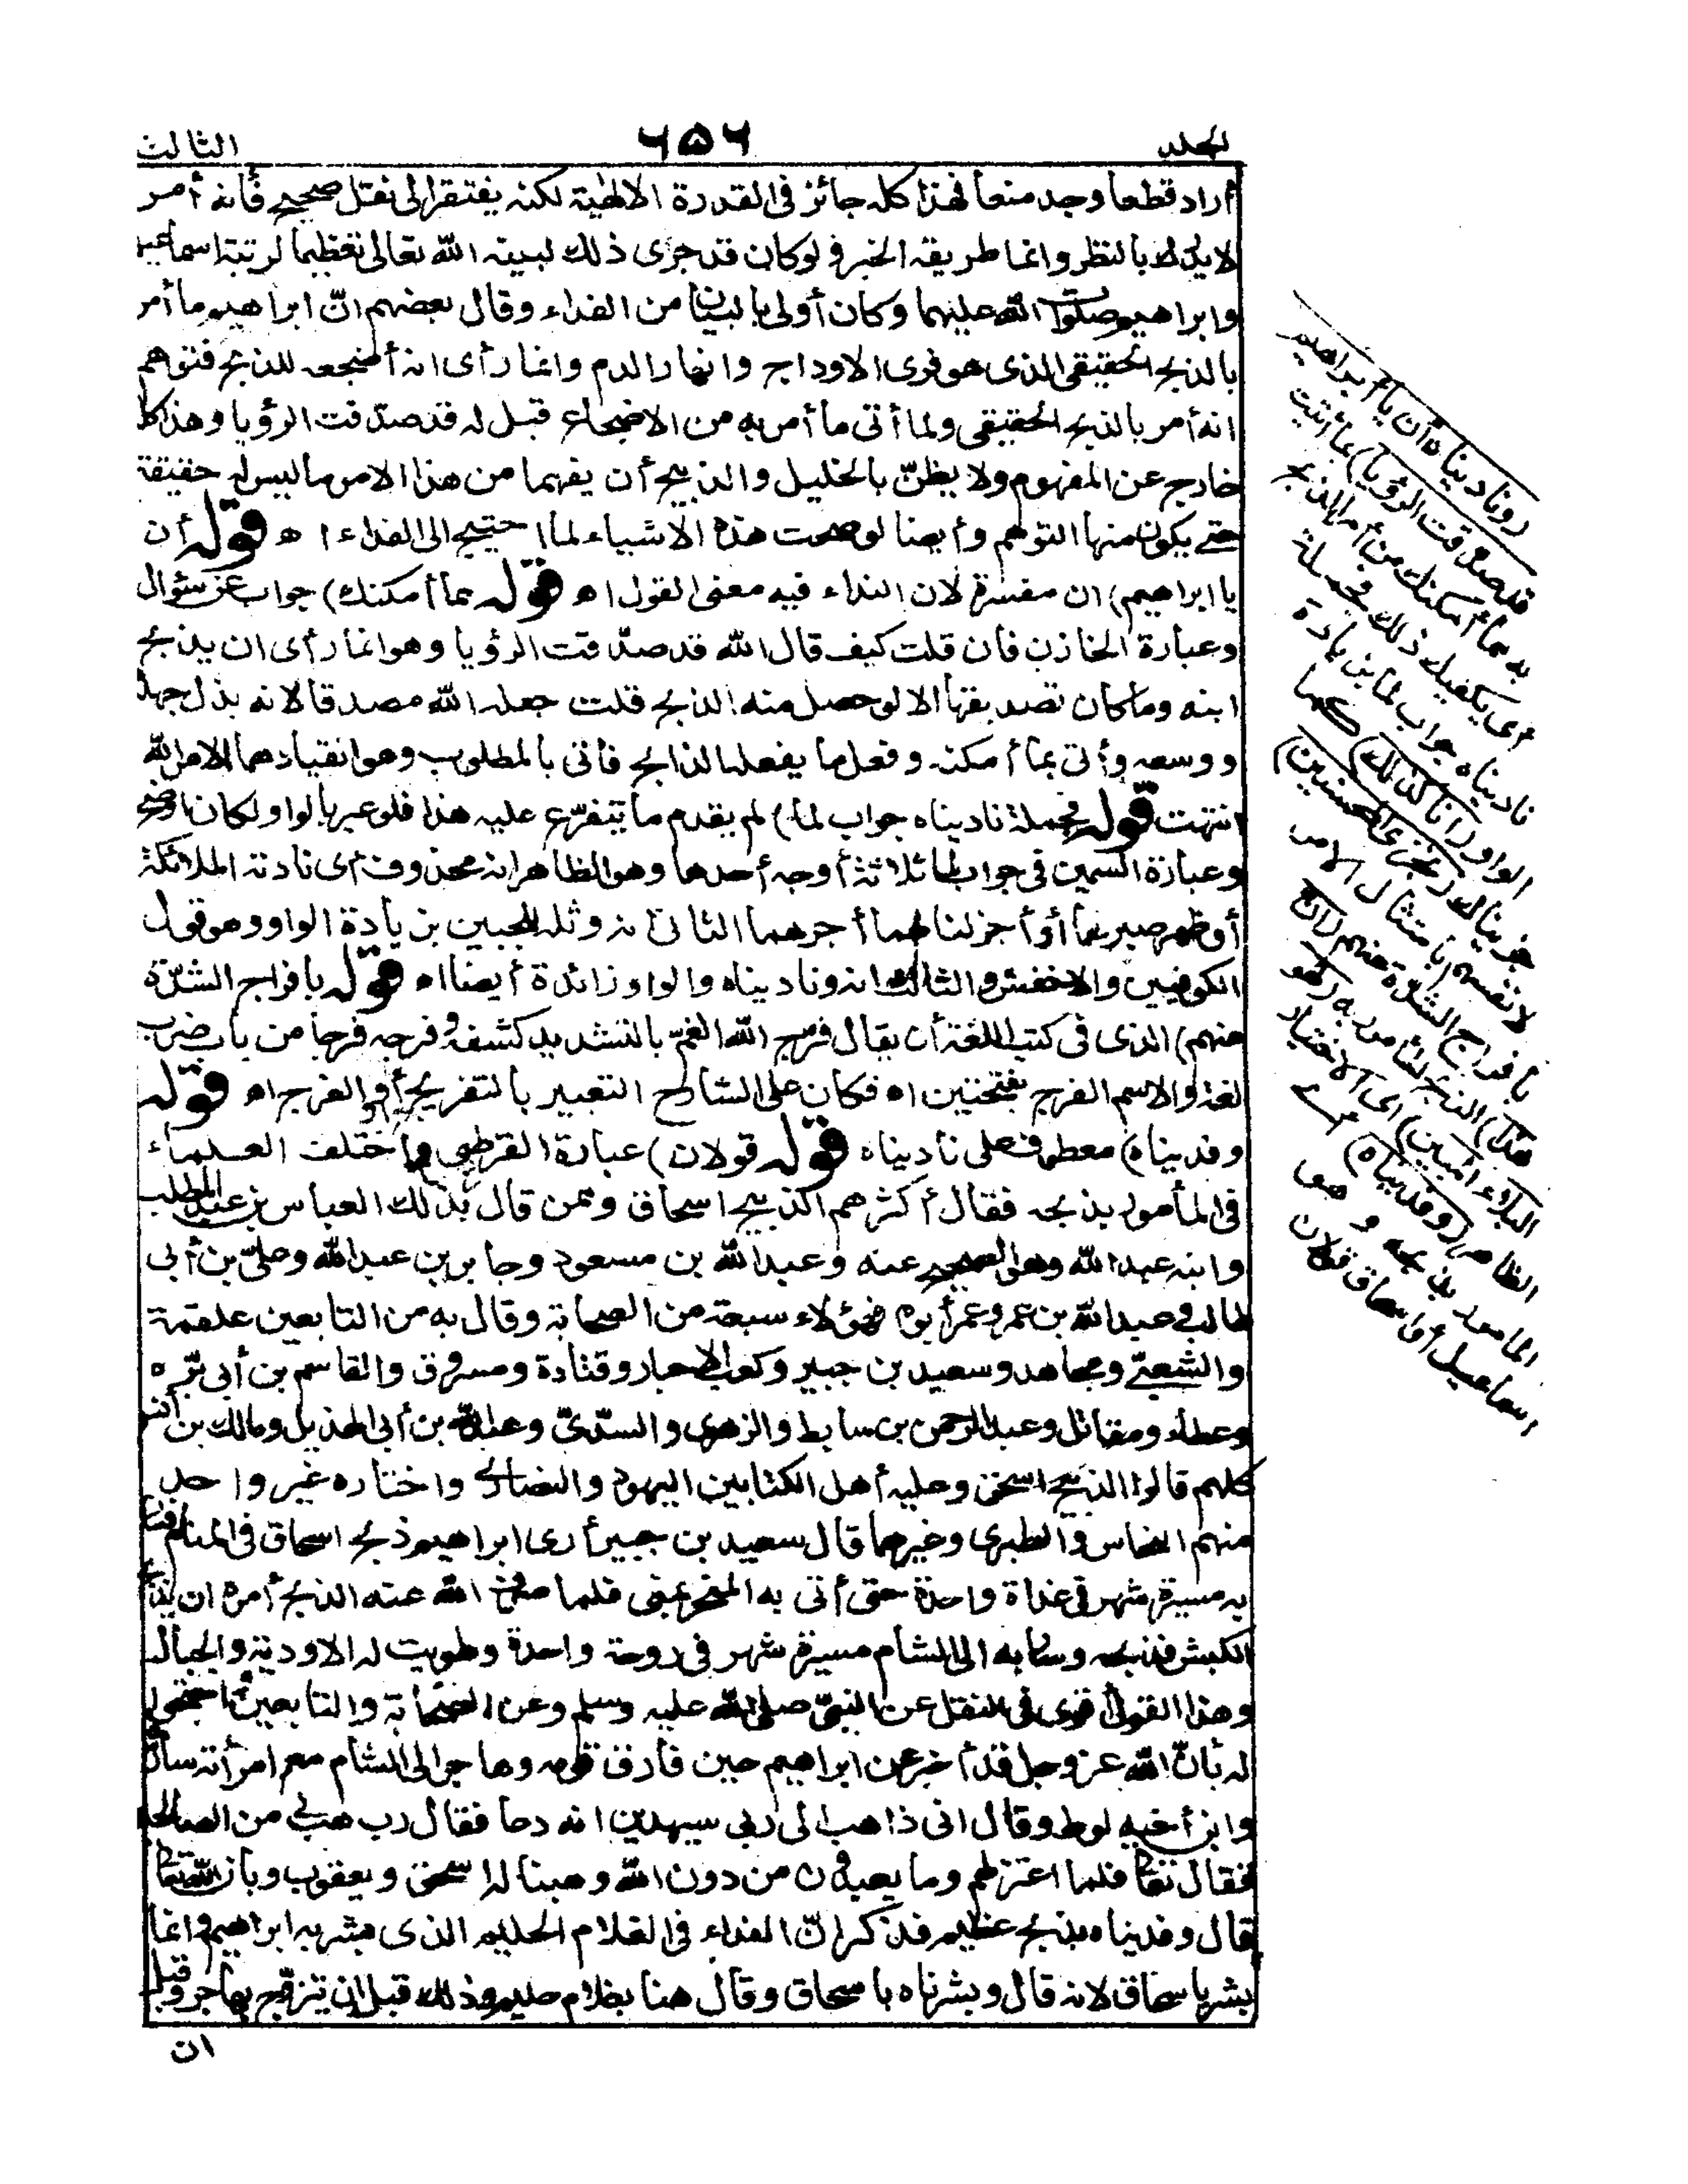 المجلد ٦٥٦ الثالث
أراد قطعا وجد منعا فهذا كله جائز فى القدرة الالهية لكنه يفتقر الى نقل صحيح فأنه أمر
لا يدرك بالنظر وانما طريقه الخبر ولو كان قد جرى ذلك لبينه الله تعالى تعظيما لرتبة اسماعيل
وابراهيم صلوات الله عليهما وكان أولى بالبيان من الفداء وقال بعضهم انّ ابراهيم ما أمر
بالذبح الحقيقى الذى هو فرى الاوداج وانهار الدم وانما رأى انه أضجعه للذبح فتوهم
انه أمر بالذبح الحقيقى ولما أتى ما أمر به من الاضجاع قيل له قد صدّقت الرؤيا وهذا كله
خارج عن المفهوم ولا يظنّ بالخليل والذبيح أن يفهما من هذا الامر ما ليس له حقيقة
حتى يكون منها التوهم وأيضا لو صحت هذه الاشياء لما احتيج الى الفداء اه قوله أن
يا ابراهيم) ان مفسرة لان النداء فيه معنى القول اه قوله مما أمكنك) جواب عن سؤال
وعبارة الخازن فان قلت كيف قال الله قد صدّقت الرؤيا وهو انما رأى ان يذبح
ابنه وما كان تصديقها الا لو حصل منه الذبح قلت جعله الله مصدقا لانه بذل جهده
ووسعه وأتى بما أمكنه وفعل ما يفعله الذابح فأتى بالمطلوب وهو انقيادهما لامر الله
انتهت قوله فجملة ناديناه جواب لما) لم يقدم ما يتفرّع عليه هذا فلو عبر بالواو لكان أوضح
وعبارة السمين فى جواب لما ثلاثة أوجه أحدها وهو الظاهر انه محذوف أى نادته الملائكة
أو ظهر صبرهما أو أجزلنا لهما أجرهما الثانى انه وتله للجبين بزيادة الواو وهو قول
الكوفيين والاخفش والثالث انه وناديناه والواو زائدة أيضا اه قوله بافراج الشدّة
عنهم) الذى فى كتب اللغة أن يقال فرّج الله الغمّ بالتشديد كشفه وفرجه فرجا من باب ضرب
لغة والاسم الفرج بفتحتين اه فكان على الشارح التعبير بالتفريج أو الفرج اه قوله
وفديناه) معطوف على ناديناه قوله قولان) عبارة القرطبى واختلف العلماء
فى المأمور بذبحه فقال أكثرهم الذبيح اسحاق وممن قال بذلك العباس بن عبد المطلب
وابنه عبد الله وهو الصحيح عنه وعبد الله بن مسعود وجابر بن عبد الله وعلىّ بن أبى
طالب وعبد الله بن عمر وعمر أبوه فهؤلاء سبعة من الصحابة وقال به من التابعين علقمة
والشعبىّ ومجاهد وسعيد بن جبير وكعب الاحبار وقتادة ومسروق والقاسم بن أبى بزّه
وعطاء ومقاتل وعبد الرحمن بن سابط والزهرى والسدّىّ وعبد الله بن أبى الهذيل ومالك بن أنس
كلهم قالوا الذبيح اسحق وعليه أهل الكتابين اليهود والنصارى واختاره غير واحد
منهم النحاس والطبرى وغيرهما قال سعيد بن جبير أرى ابراهيم ذبح اسحاق فى المنام فسار
به مسيرة شهر فى غداة واحدة حتى أتى به المنحر بمنى فلما صرف الله عنه الذبح أمره ان يذبح
الكبش فذبحه وسار به الى الشام مسيرة شهر فى روحة واحدة وطويت له الاودية والجبال
وهذا القول أقوى فى النقل عن النبىّ صلى الله عليه وسلم وعن الصحابة والتابعين احتجوا
له بأنّ الله عز وجل قد أخبر عن ابراهيم حين فارق قومه وهاجر الى الشام مع امرأته سارّة
وابن أخيه لوط وقال انى ذاهب الى ربى سيهدين انه دعا فقال رب هب لى من الصالحين
فقال تعالى فلما اعتزلهم وما يعبدون من دون الله وهبنا له اسحق ويعقوب وبأن الله تعالى
قال وفديناه بذبح عظيم فذكر انّ الفداء فى الغلام الحليم الذى بشر به ابراهيم وانما
بشر باسحاق لانه قال وبشرناه باسحاق وقال هنا بغلام حليم وذلك قبل ان يتزوّج بهاجر وقبل
ان
(وناديناه أن يا ابراهيم
قد صدقت الرؤيا) بما أتيت
به مما أمكنك من أمر الذبح
أى يكفيك ذلك فجملة
ناديناه جواب لما بزيادة
الواو (انا كذلك) كما
جزيناك (نجزى المحسنين)
لانفسهم بامتثال الامر
بافراج الشدة عنهم (ان
هذا) الذبح المأمور به (لهو
البلاء المبين) اى الاختبار
الظاهر (وفديناه) اى
المامور بذبحه وهو
اسماعيل أو اسحاق قولان